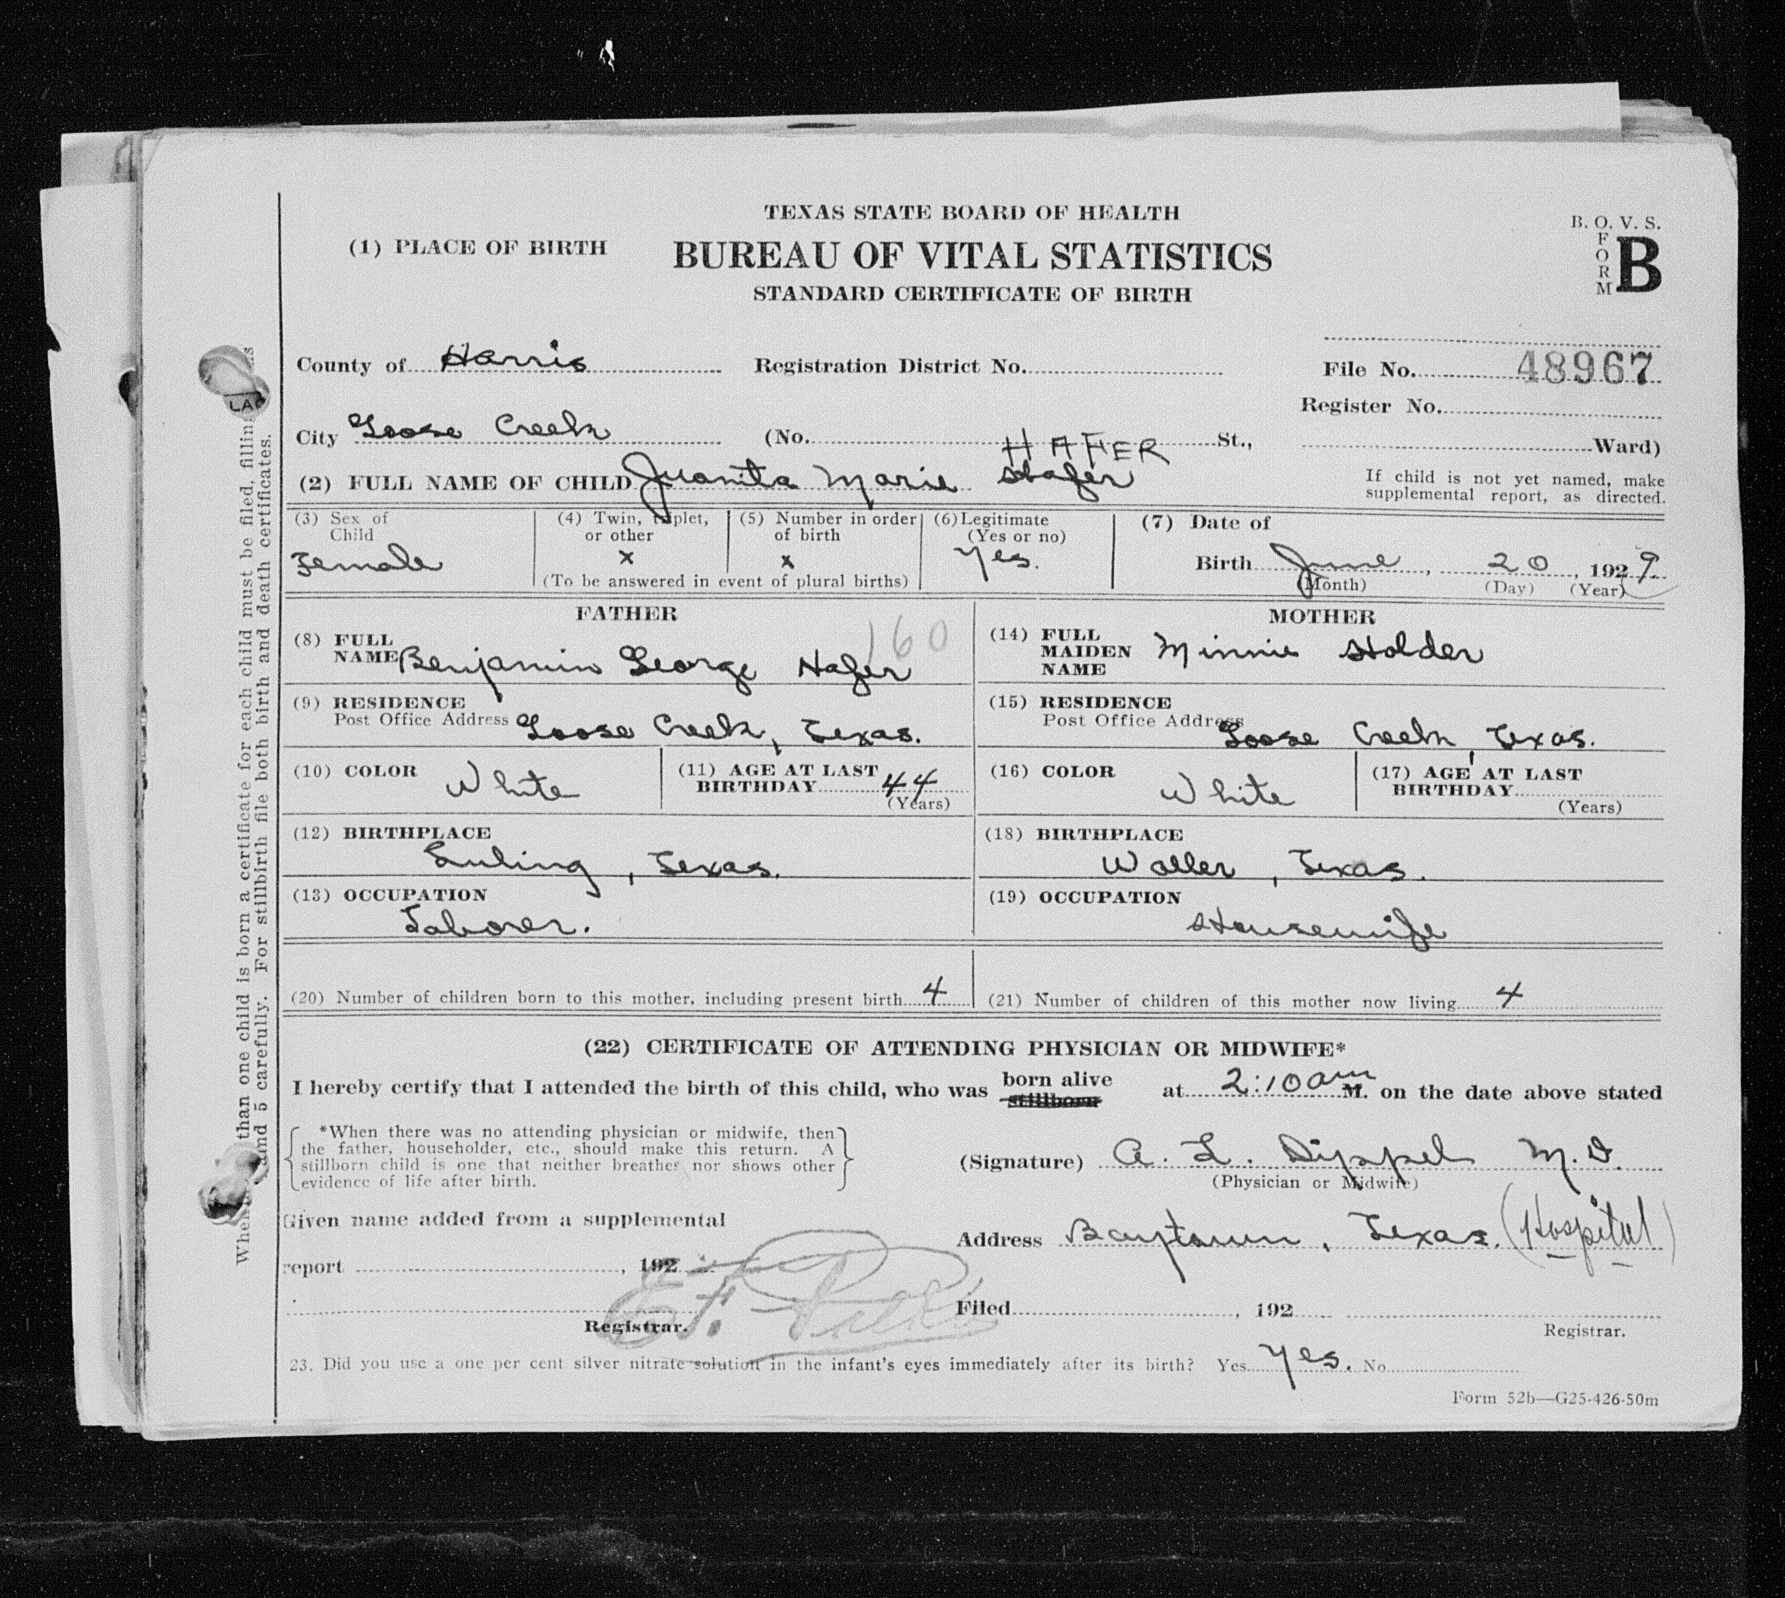 TEXAS STATE BOARD OF HEALTH
B. O. V. S.
FORM B
(1) PLACE OF BIRTH
BUREAU OF VITAL STATISTICS
STANDARD CERTIFICATE OF BIRTH
County of Harris Registration District No. File No. 48967
Register No.
City Goose Creek (No. St., Ward)
HAFER
(2) FULL NAME OF CHILD Juanita Marie Hafer
If child is not yet named, make
supplemental report, as directed.
(3) Sex of Child Female
(4) Twin, triplet, or other x
(5) Number in order of birth x
(To be answered in event of plural births)
(6) Legitimate (Yes or no) Yes.
(7) Date of
Birth June, 20, 1929
(Month) (Day) (Year)
FATHER
160
(8) FULL NAME Benjamin George Hafer
(9) RESIDENCE
Post Office Address Goose Creek, Texas.
(10) COLOR White
(11) AGE AT LAST BIRTHDAY 44 (Years)
(12) BIRTHPLACE
Luling, Texas.
(13) OCCUPATION
Laborer.
MOTHER
(14) FULL MAIDEN NAME Minnie Holder
(15) RESIDENCE
Post Office Address Goose Creek, Texas.
(16) COLOR White
(17) AGE AT LAST BIRTHDAY (Years)
(18) BIRTHPLACE
Waller, Texas.
(19) OCCUPATION
Housewife
(20) Number of children born to this mother, including present birth 4
(21) Number of children of this mother now living 4
(22) CERTIFICATE OF ATTENDING PHYSICIAN OR MIDWIFE*
I hereby certify that I attended the birth of this child, who was born alive stillborn at 2:10 am M. on the date above stated
*When there was no attending physician or midwife, then
the father, householder, etc., should make this return. A
stillborn child is one that neither breathes nor shows other
evidence of life after birth.
(Signature) A. L. Dippel M.D.
(Physician or Midwife)
Given name added from a supplemental
report , 192
Registrar.
Address Baytown, Texas. (Hospital)
Filed , 192
Registrar.
23. Did you use a one per cent silver nitrate solution in the infant's eyes immediately after its birth? Yes Yes. No
Form 52b—G25-426-50m
than one child is born a certificate for each child must be filed, filling
and 5 carefully. For stillbirth file both birth and death certificates.